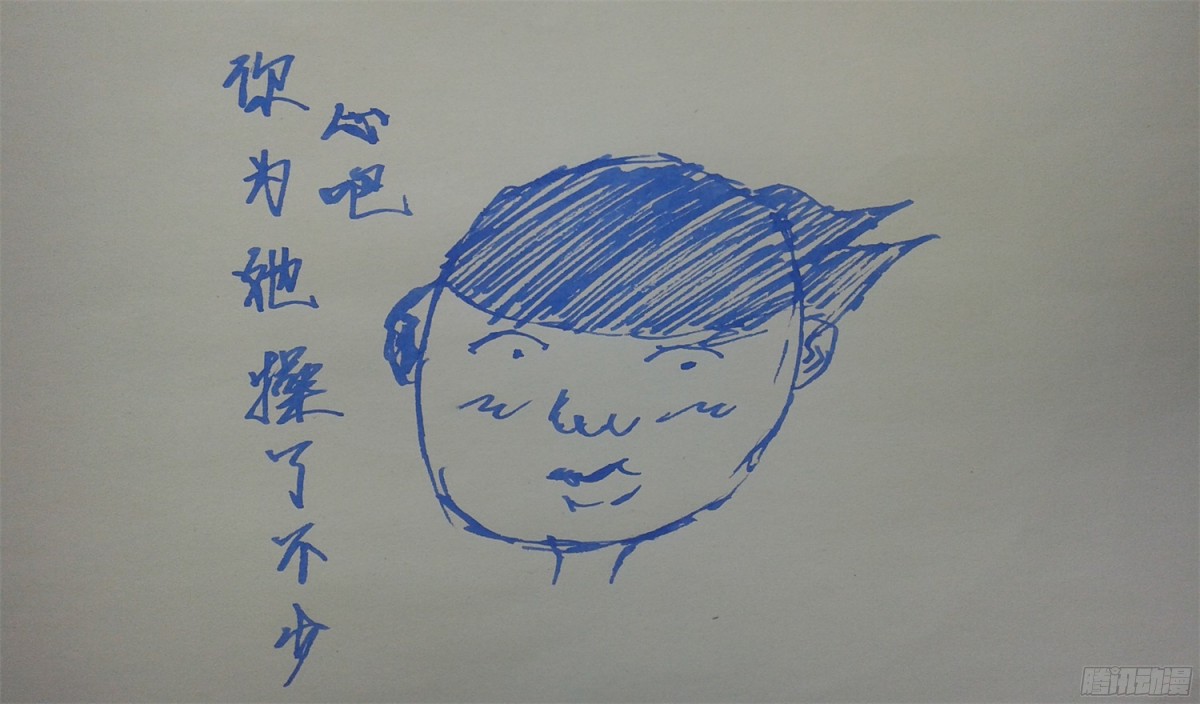 你为她操了不少
心吧
腾讯动漫